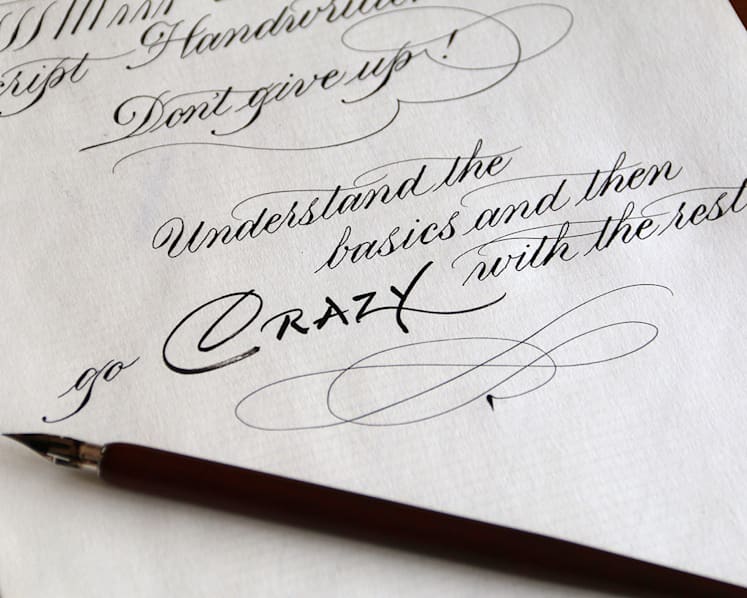 Handwritten
Don't give up!
Understand the
basics and then
go CRAZY with the rest